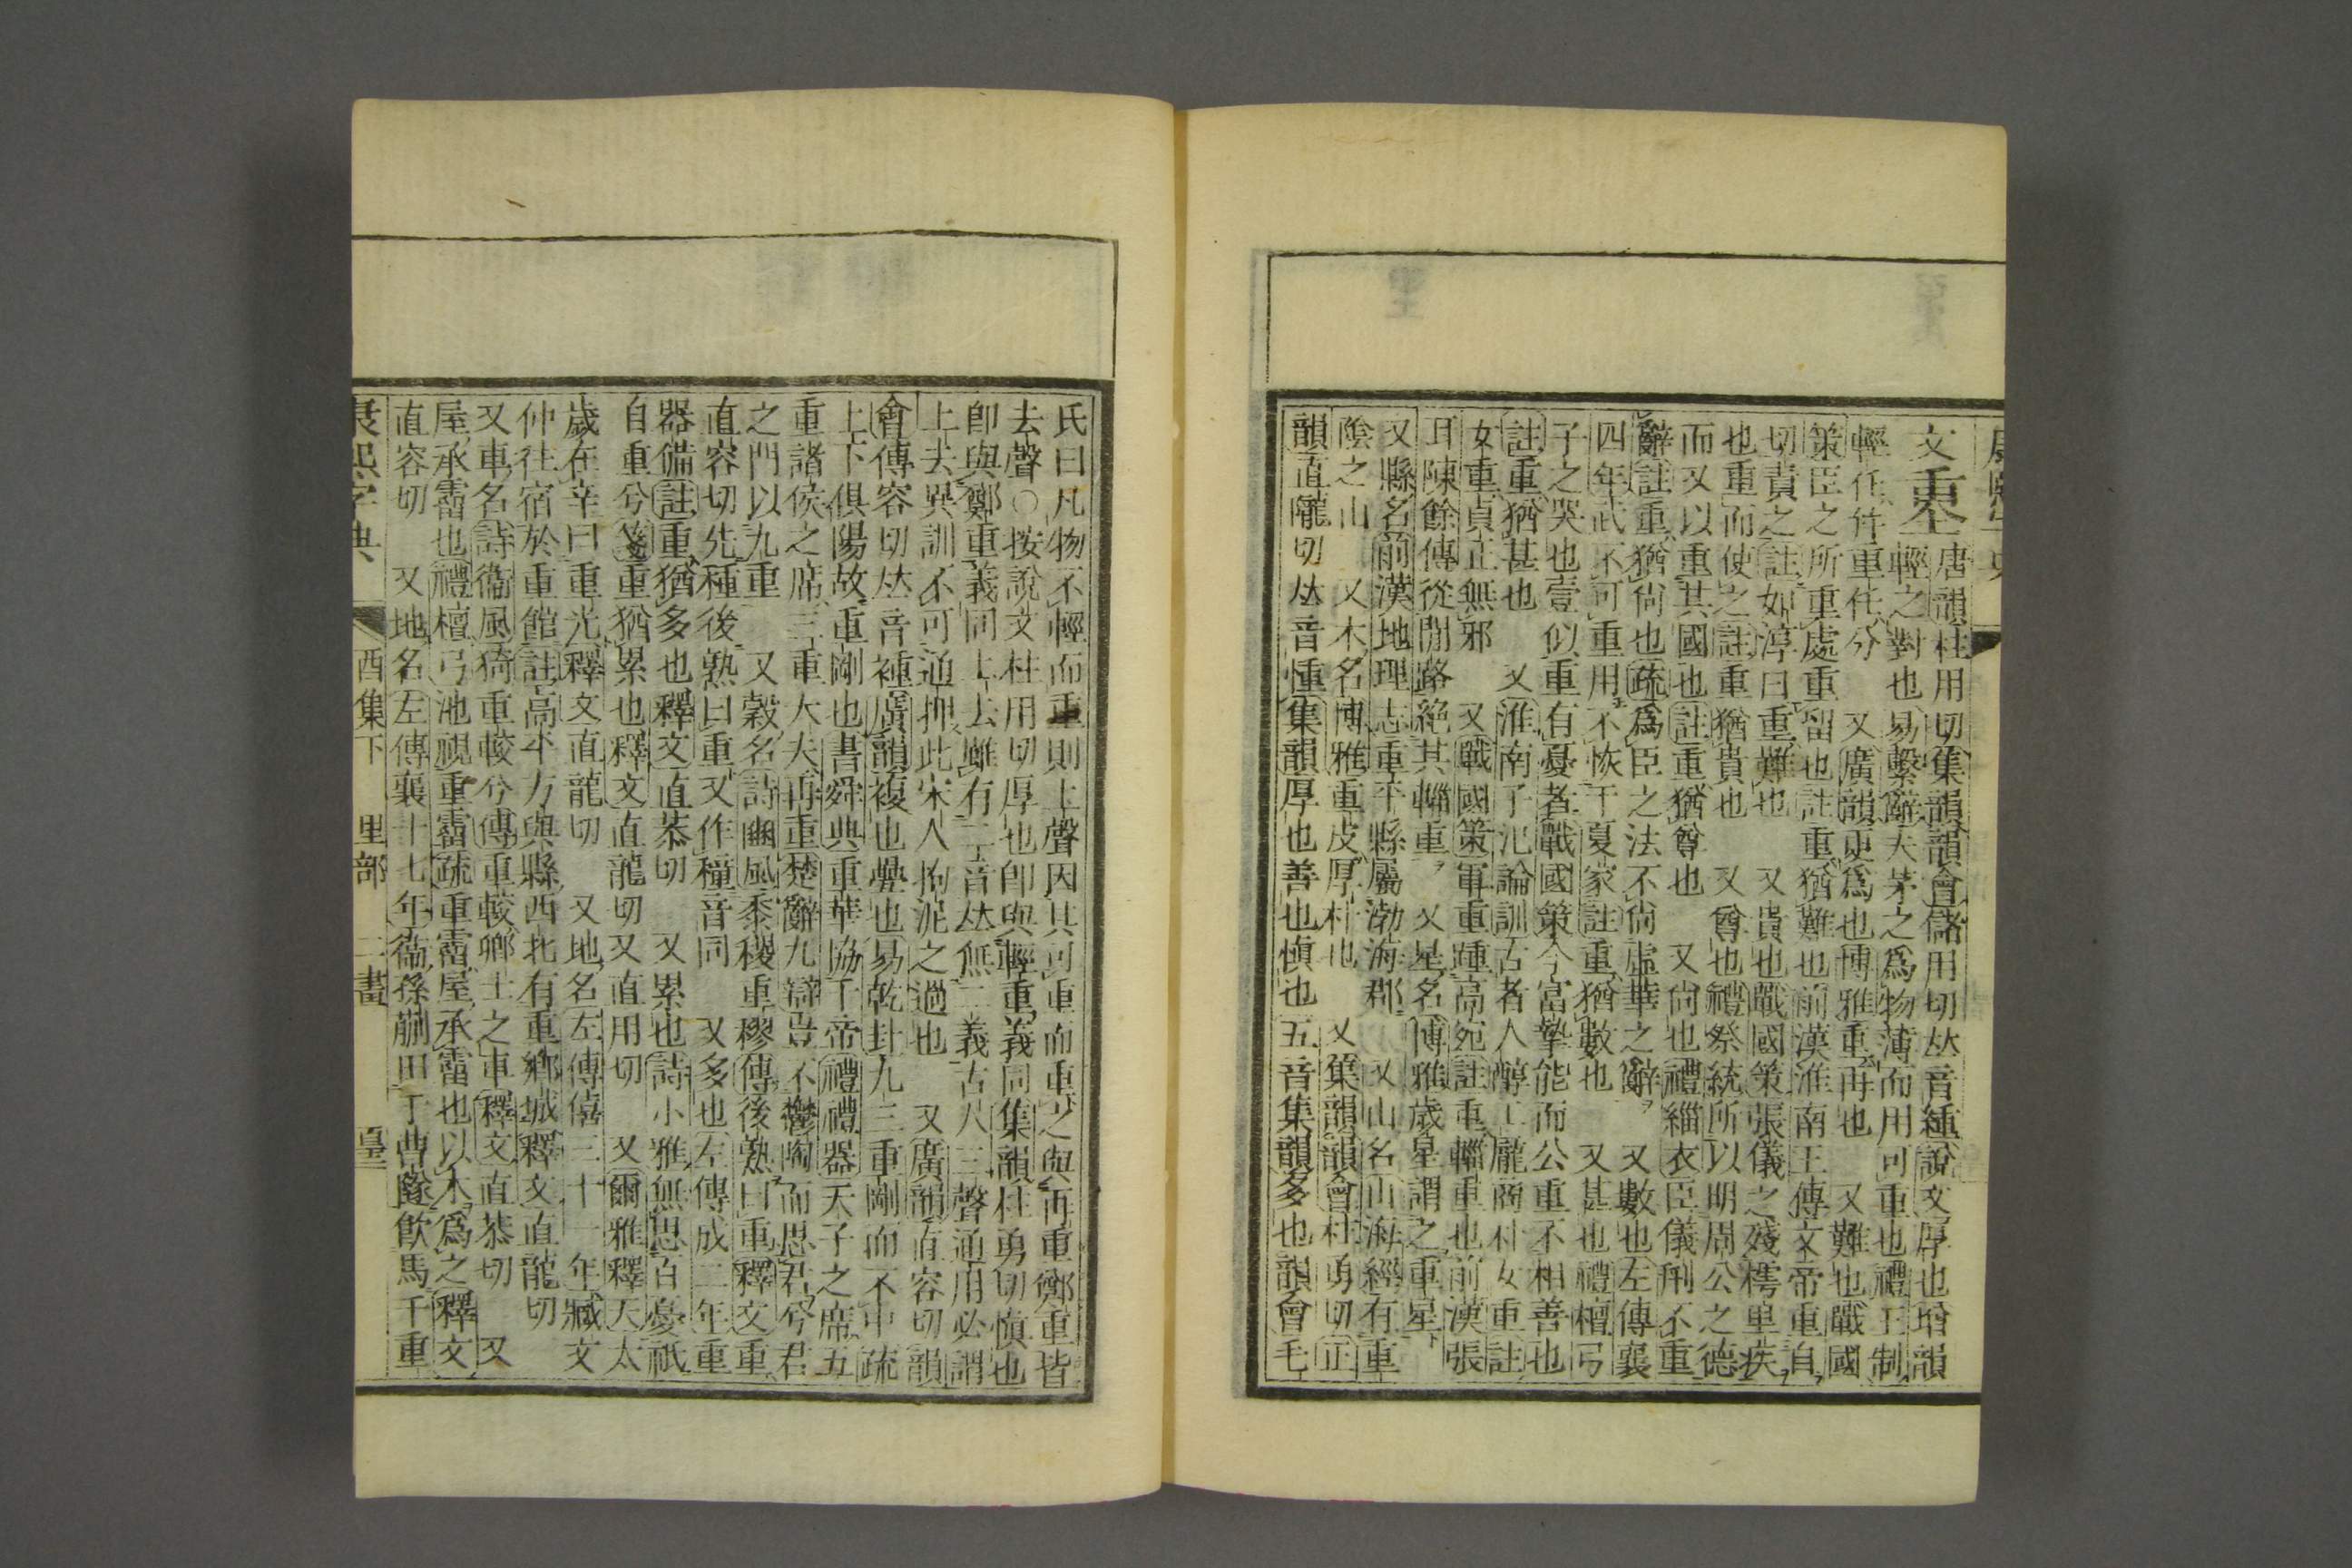 文𡍺唐韻柱用切集韻韻會儲用切𠀤音緟說文厚也增韻
輕之對也易繫辭夫茅之爲物薄而用可重也禮王制
輕任幷重任分 又廣韻更爲也博雅重再也 又難也戰國
策臣之所重處重留也註重猶難也前漢淮南王傳文帝重自
切責之註如淳曰重難也 又貴也戰國策張儀之殘樗里疾
也重而使之註重猶貴也 又尊也禮祭統所以明周公之德
而又以重其國也註重猶尊也 又尚也禮緇衣臣儀刑不重
辭註重猶尚也疏爲臣之法不尚虛華之辭 又數也左傳襄
四年武不可重用不恢于夏家註重猶數也 又甚也禮檀弓
子之哭也壹似重有憂者戰國策今富摯能而公重不相善也
註重猶甚也 又淮南子氾論訓古者人醇工龐商朴女重註
女重貞正無邪 又戰國策軍重踵高宛註重輜重也前漢張
耳陳餘傳從閒路絕其輜重 又星名博雅歲星謂之重星
又縣名前漢地理志重平縣屬渤海郡 又山名山海經有重
陰之山 又木名博雅重皮厚朴也 又集韻韻會柱勇切正
韻直隴切𠀤音㣫集韻厚也善也愼也五音集韻多也韻會毛
氏曰凡物不輕而重則上聲因其可重而重之與再重鄭重皆
去聲○按說文柱用切厚也卽與輕重義同集韻柱勇切愼也
卽與鄭重義同上去雖有二音𠀤無二義古人三聲通用必謂
上去異訓不可通押此宋人拘泥之過也 又廣韻直容切韻
會傳容切𠀤音褈廣韻複也疊也易乾卦九三重剛而不中疏
上下俱陽故重剛也書舜典重華協于帝禮禮器天子之席五
重諸侯之席三重大夫再重楚辭九辯豈不鬱陶而思君兮君
之門以九重 又穀名詩豳風黍稷重穋傳後熟曰重釋文重
直容切先種後熟曰重又作穜音同 又多也左傳成二年重
器備註重猶多也釋文直恭切 又累也詩小雅無思百憂祇
自重兮箋重猶累也釋文直龍切又直用切 又爾雅釋天太
歲在辛曰重光釋文直龍切 又地名左傳僖三十一年臧文
仲往宿於重館註高平方與縣西北有重鄉城釋文直龍切
又車名詩衞風猗重較兮傳重較卿士之車釋文直恭切 又
屋承霤也禮檀弓池視重霤疏重霤屋承霤也以木爲之釋文
直容切 又地名左傳襄十七年衞孫蒯田于曹隧飮馬于重
康熙字典 酉集下 里部 二畫